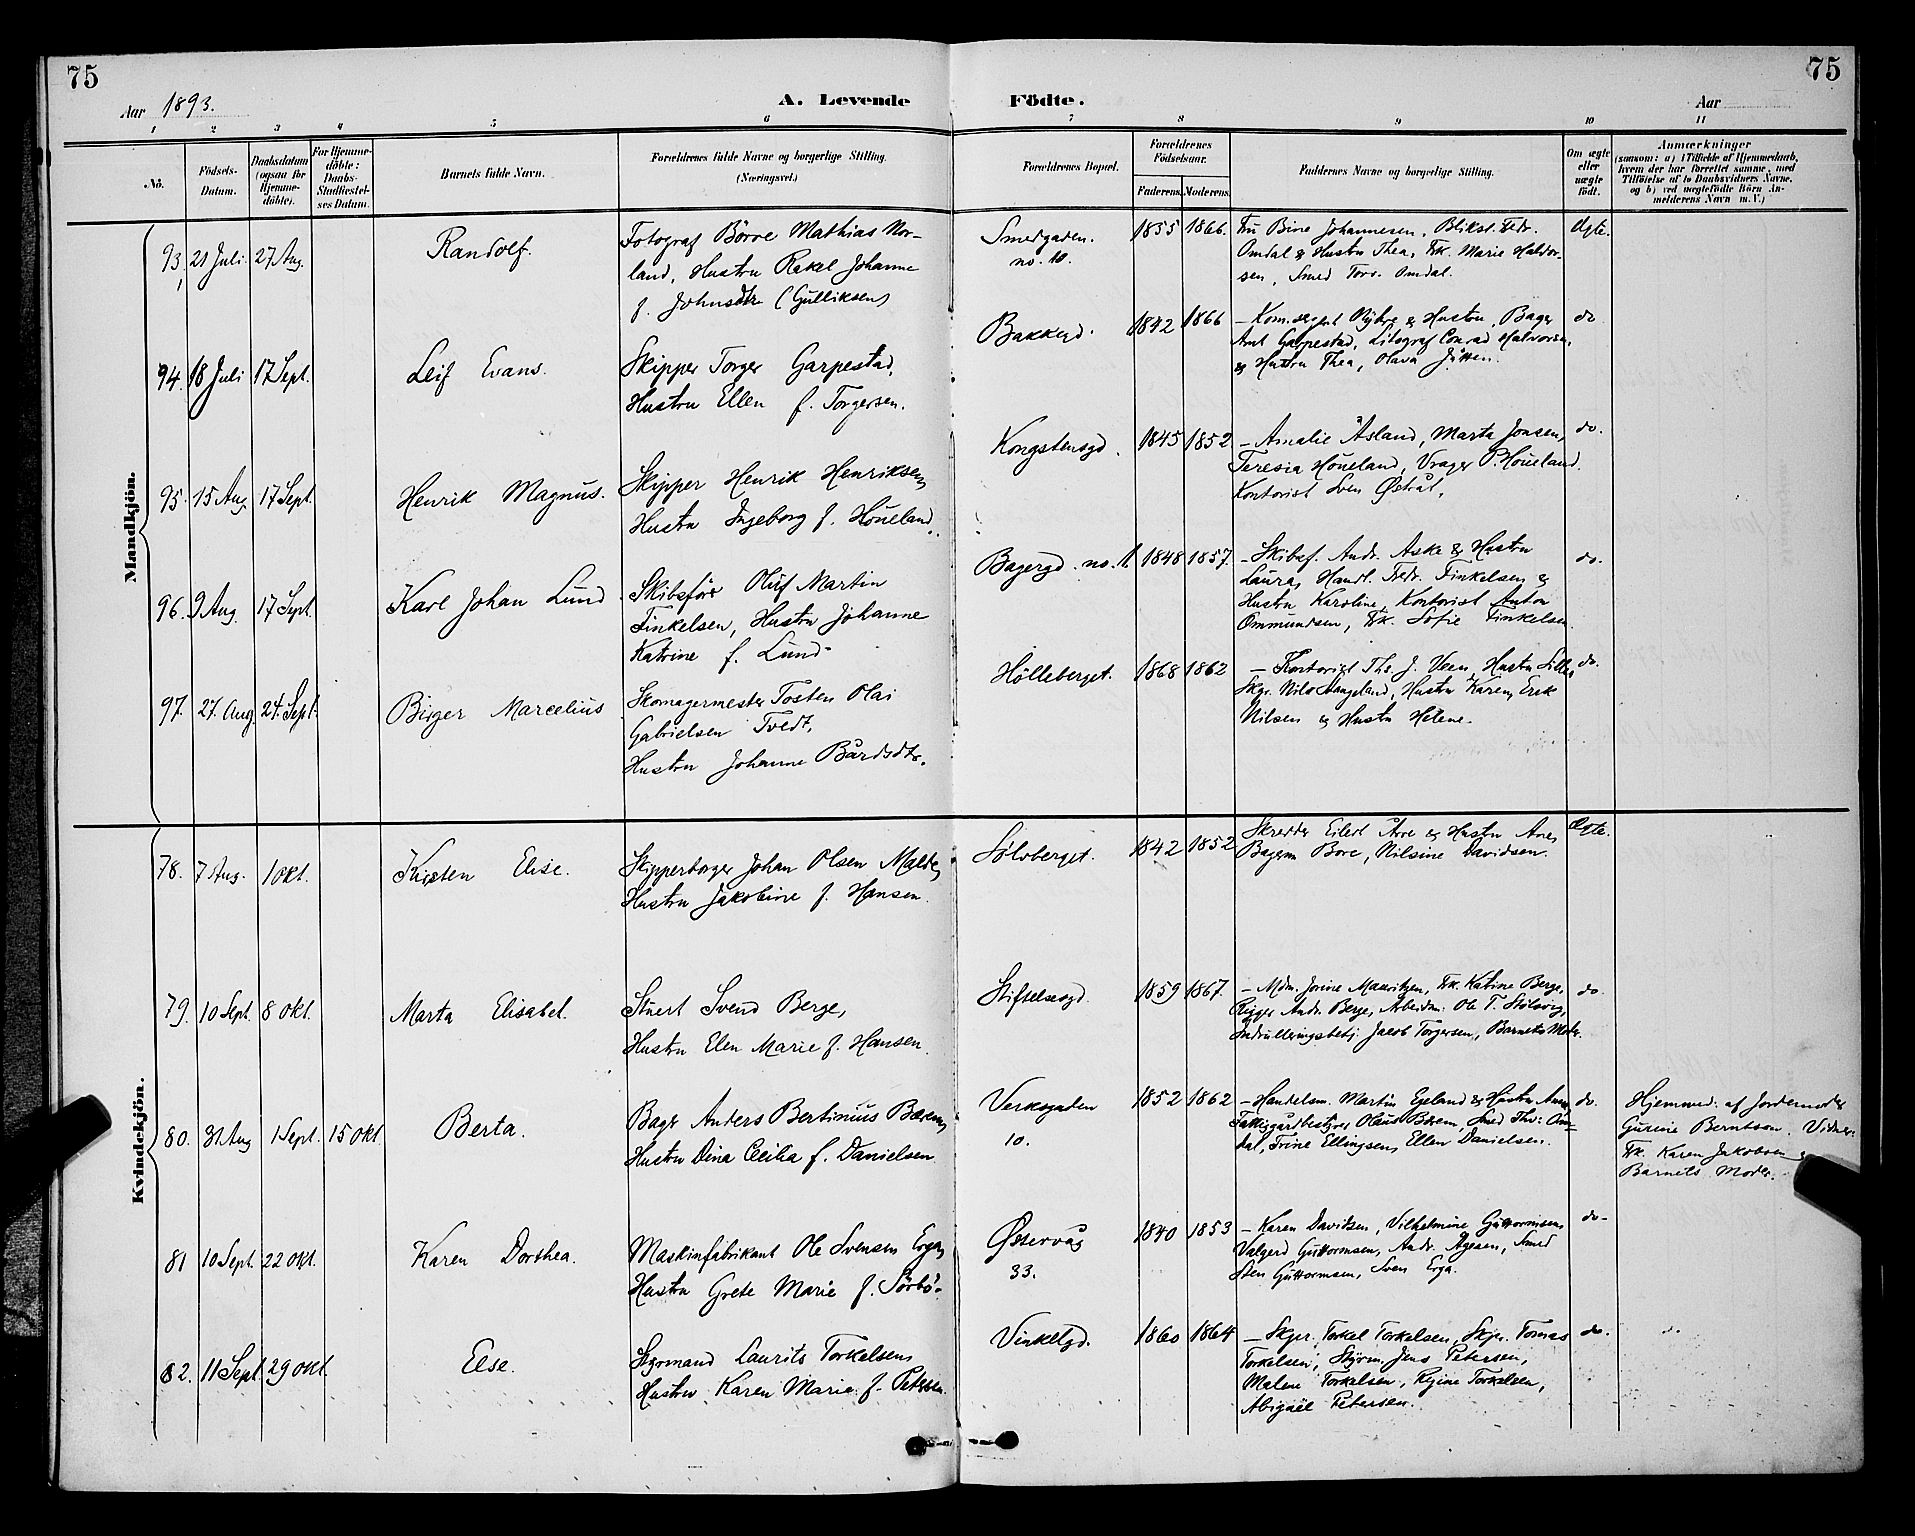 75
75
Aar 1893.
A. Levende
Födte.
Aar
1 2 3 4 5 6 7 8 9 10 11
No.
Födsels-
Datum.
Daabsdatum
(ogsaa for
Hjemme-
döbte).
For Hjemme-
döbte:
Daabs-
Stadfæstel-
ses Datum.
Barnets fulde Navn.
Forældrenes fulde Navne og borgerlige Stilling.
(Næringsvei.)
Forældrenes Bopæl.
Forældrenes
Födselsaar.
Faderens. Moderens.
Faddernes Navne og borgerlige Stilling.
Om ægte
eller
uægte
födt.
Anmærkninger
(saasom: a) i Tilfælde af Hjemmedaab,
hvem der har forrettet samme, med
Tilföielse af to Daabsvidners Navne.
og b) ved uægtefödte Börn An-
melderens Navn m. V.)
Mandkjön.
93, 21 Juli 27 Aug. Randolf.
Fotograf Börre Mathias Nor-
land, Hustru Rakel Johanne
f. Johnsdtr (Gulliksen)
Smedgaden.
no. 10.
1855 1866.
Fru Bine Johannesen, Bliksl. Fedr.
Omdal & Hustru Thea, Frk. Marie Haldor-
sen, Smed Torv. Omdal.
Ægte.
94. 18 Juli 17 Sept. Leif Evans.
Skipper Torger Garpestad,
Hustru Ellen f. Torgersen.
Bakkegd.
1842 1866
Hustru, Bager
Garpestad, Litograf Conrad Halvorsen,
& Hustru Thea, Olava
do
95. 15 Aug. 17 Sept. Henrik Magnus.
Skipper Henrik Henriksen,
Hustru Ingeborg f. Höueland.
Kongstensgd.
1845 1852
- Amalie Åsland, Marta Jonsen,
Teresia Höueland, Vrager P. Höueland.
Kontorist Sven Østråt.
do.
96. 9 Aug. 17 Sept. Karl Johan Lund
Skibsförer Oluf Martin
Finkelsen, Hustru Johanne
Katrine f. Lund.
Bagergd. no. 1.
1848 1857.
- Skibsf. Andr. Aske & Hustru
Laura, Handl. Fedr. Finkelsen &
Hustru Karoline, Kontorist Anton
Ommundsen, Frk. Sofie Finkelsen.
do.
97. 27. Aug 24. Sept. Birger Marcelius
Skomagermester Tosten Olai
Gabrielsen Tvedt,
Hustru Johanne Bårdsdtr.
Hölleberget.
1868 1862
- Kontorist Ths. J. Veen, Hustru
Skgr. Nils Hangeland, Hustru Karen, Erik
Nilsen & Hustru Helene.
do.
Kvindekjön.
78. 7 Aug. 1 Okt. Kirsten Elise.
Skipperborger Johan Olsen Malde,
Hustru Jakobine f. Hansen.
Sölvberget.
1842 1852
Skredder Eilert Åre & Hustru Ane,
Bore, Nilsine Davidsen.
Ægte.
79. 10 Sept. 8 Okt. Marta Elisabet.
Stuert Svend Berge,
Hustru Elen Marie f. Hansen.
Stiftelsesgd.
1859 1867.
- Mdm. Jonine Mauritzen, Frk. Katrine Berge,
Rigger Andr. Berge, Arbeidm. Ole T. Sölsvig,
Indrulleringsbetj. Jacob Torgersen, Barnets Moder.
do.
80. 31 Aug 1 Sept. 15 Okt. Berta.
Bager Anders Bertinius Bærem,
Hustru Dina Cecilia f. Danielsen.
Verksgaden
10.
1852 1862
- Handelsm. Martin Egeland & Hustru Anna,
Olaus Bærem, Smed Thv. Om-
dal, Trine Ellingsen, Ellen Danielsen.
do.
Hjemmed. af Jordemoder
Gurine Berntsen. Vidner:
Frk. Karen Jakobsen &
Barnets Moder.
81 10 Sept. 22 Okt. Karen Dorthea.
Maskinfabrikant Ole Svensen Erga,
Hustru Grete Marie f. Sörbö.
Østervåg
33.
1840 1853
- Karen Davidsen, Vilhelmine Guttormsen,
Valgerd Guttormsen, Andr. Agesen, Smed
Sten Guttormsen, Sven Erga.
do.
82. 11 Sept 29 Okt. Else.
Styrmand Laurits Torkelsen,
Hustru Karen Marie f. Petersen.
Vinkelgd.
1860 1864
- Skpr. Torkel Torkelsen, Skpr. Tomas
Torkelsen, Styrm. Jens Petersen,
Malene Torkelsen, Regine Torkelsen,
Abigael Petersen.
do.